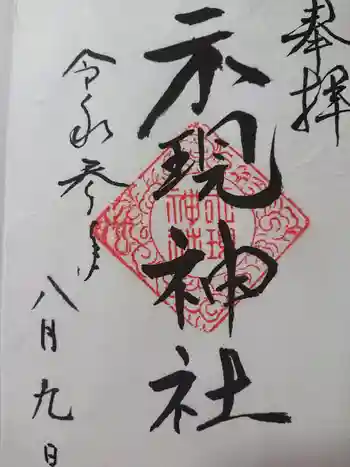 奉拝
示現神社
令和参年
八月九日